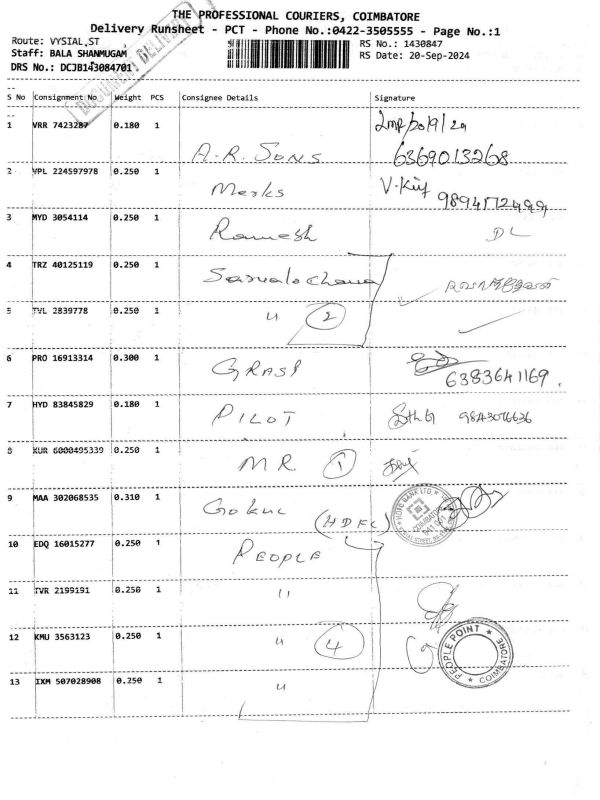 THE PROFESSIONAL COURIERS, COIMBATORE
Delivery Runsheet - PCT - Phone No.:0422-3505555 - Page No.:1
Route: VYSIAL,ST
RS No.: 1430847
Staff: BALA SHANMUGAM
RS Date: 20-Sep-2024
DRS No.: DCJB143084701
DOCUMENT DELIVERY
S No Consignment No Weight PCS Consignee Details Signature
1 VRR 7423287 0.180 1 A.R. SONS 20/9/24
6369013268
2 VPL 224597978 0.250 1 Merks V.
9894172499
3 MYD 3054114 0.250 1 Ramesh DL
4 TRZ 40125119 0.250 1
5 TVL 2839778 0.250 1 " 2
6 PRO 16913314 0.300 1 GRASP
6383641169.
7 HYD 83845829 0.180 1 PILOT 9843076636
8 KUR 6000495339 0.250 1 MR 1
9 MAA 302068535 0.310 1 Gokul (HDFC) HDFC BANK LTD. COIMBATORE
10 EDQ 16015277 0.250 1 PEOPLE
11 TVR 2199191 0.250 1 "
12 KMU 3563123 0.250 1 " 4 PEOPLE POINT COIMBATORE
13 IXM 507028908 0.250 1 "